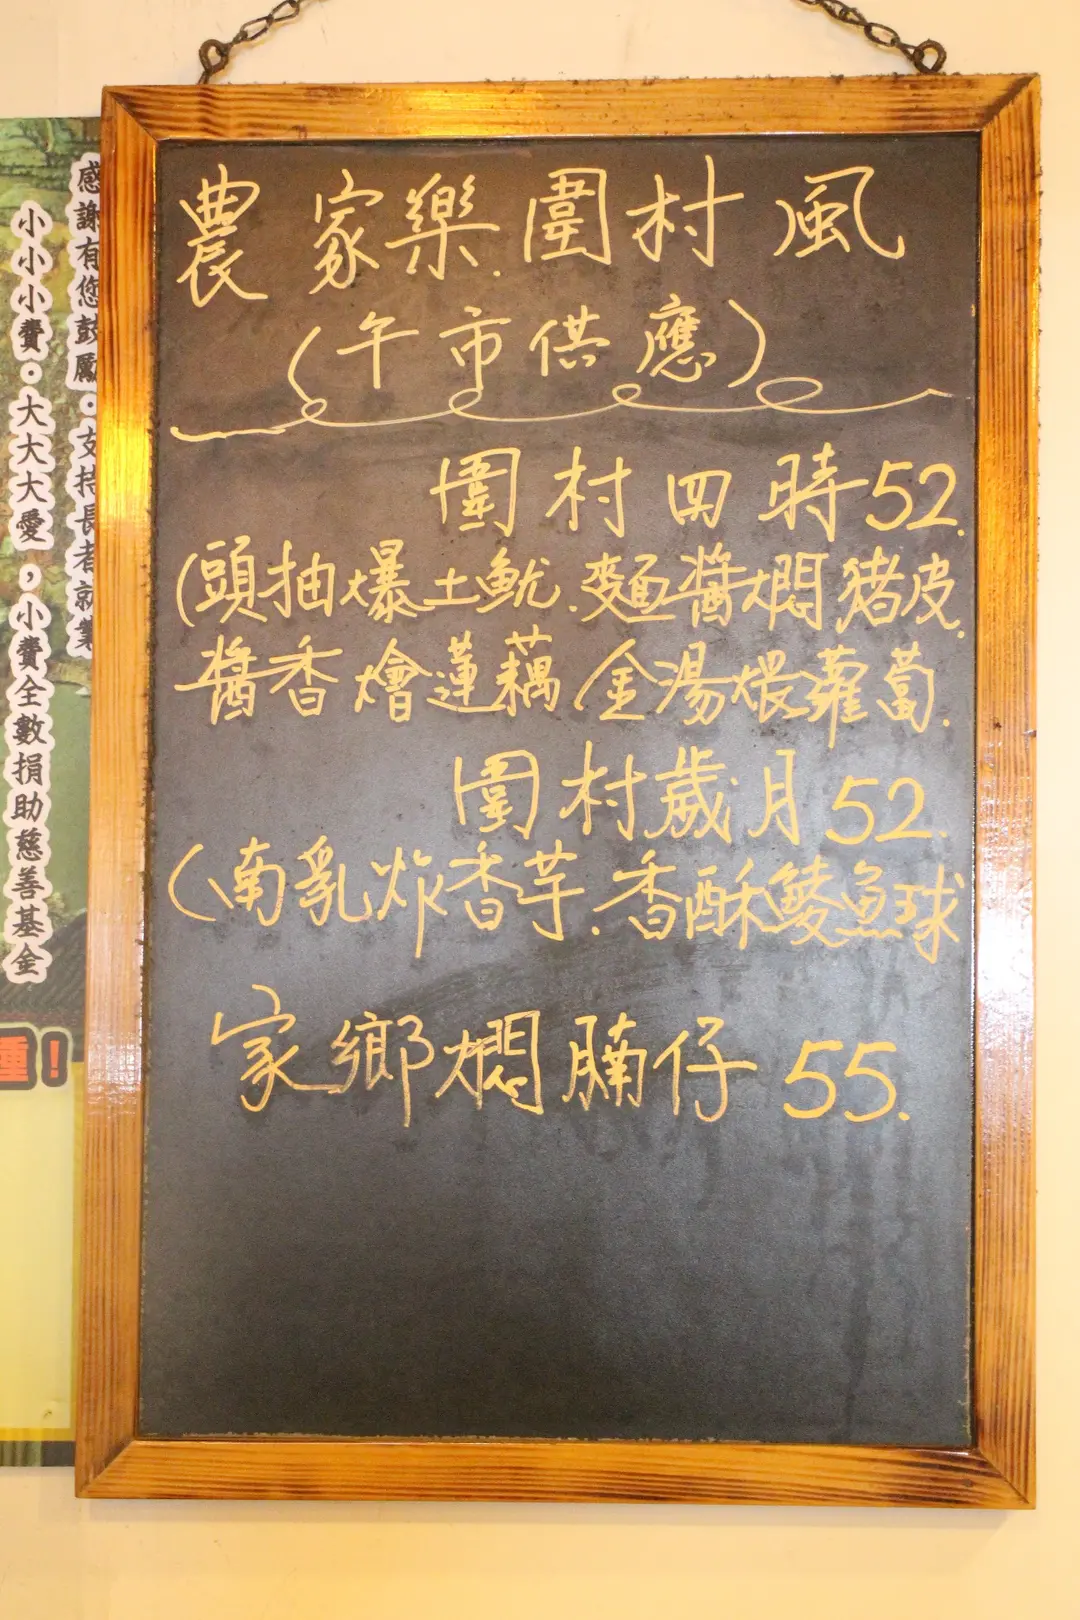 農家樂.圍村風
(午市供應)
圍村四時52.
(頭抽爆土魷.麵醬燜豬皮.
醬香燴蓮藕 金湯煨蘿蔔.
圍村歲月52.
(南乳炸香芋.香酥鯪魚球
家鄉燜腩仔55.
感謝有您鼓勵。支持長者就業
小小小費。大大大愛，小費全數捐助慈善基金
種！